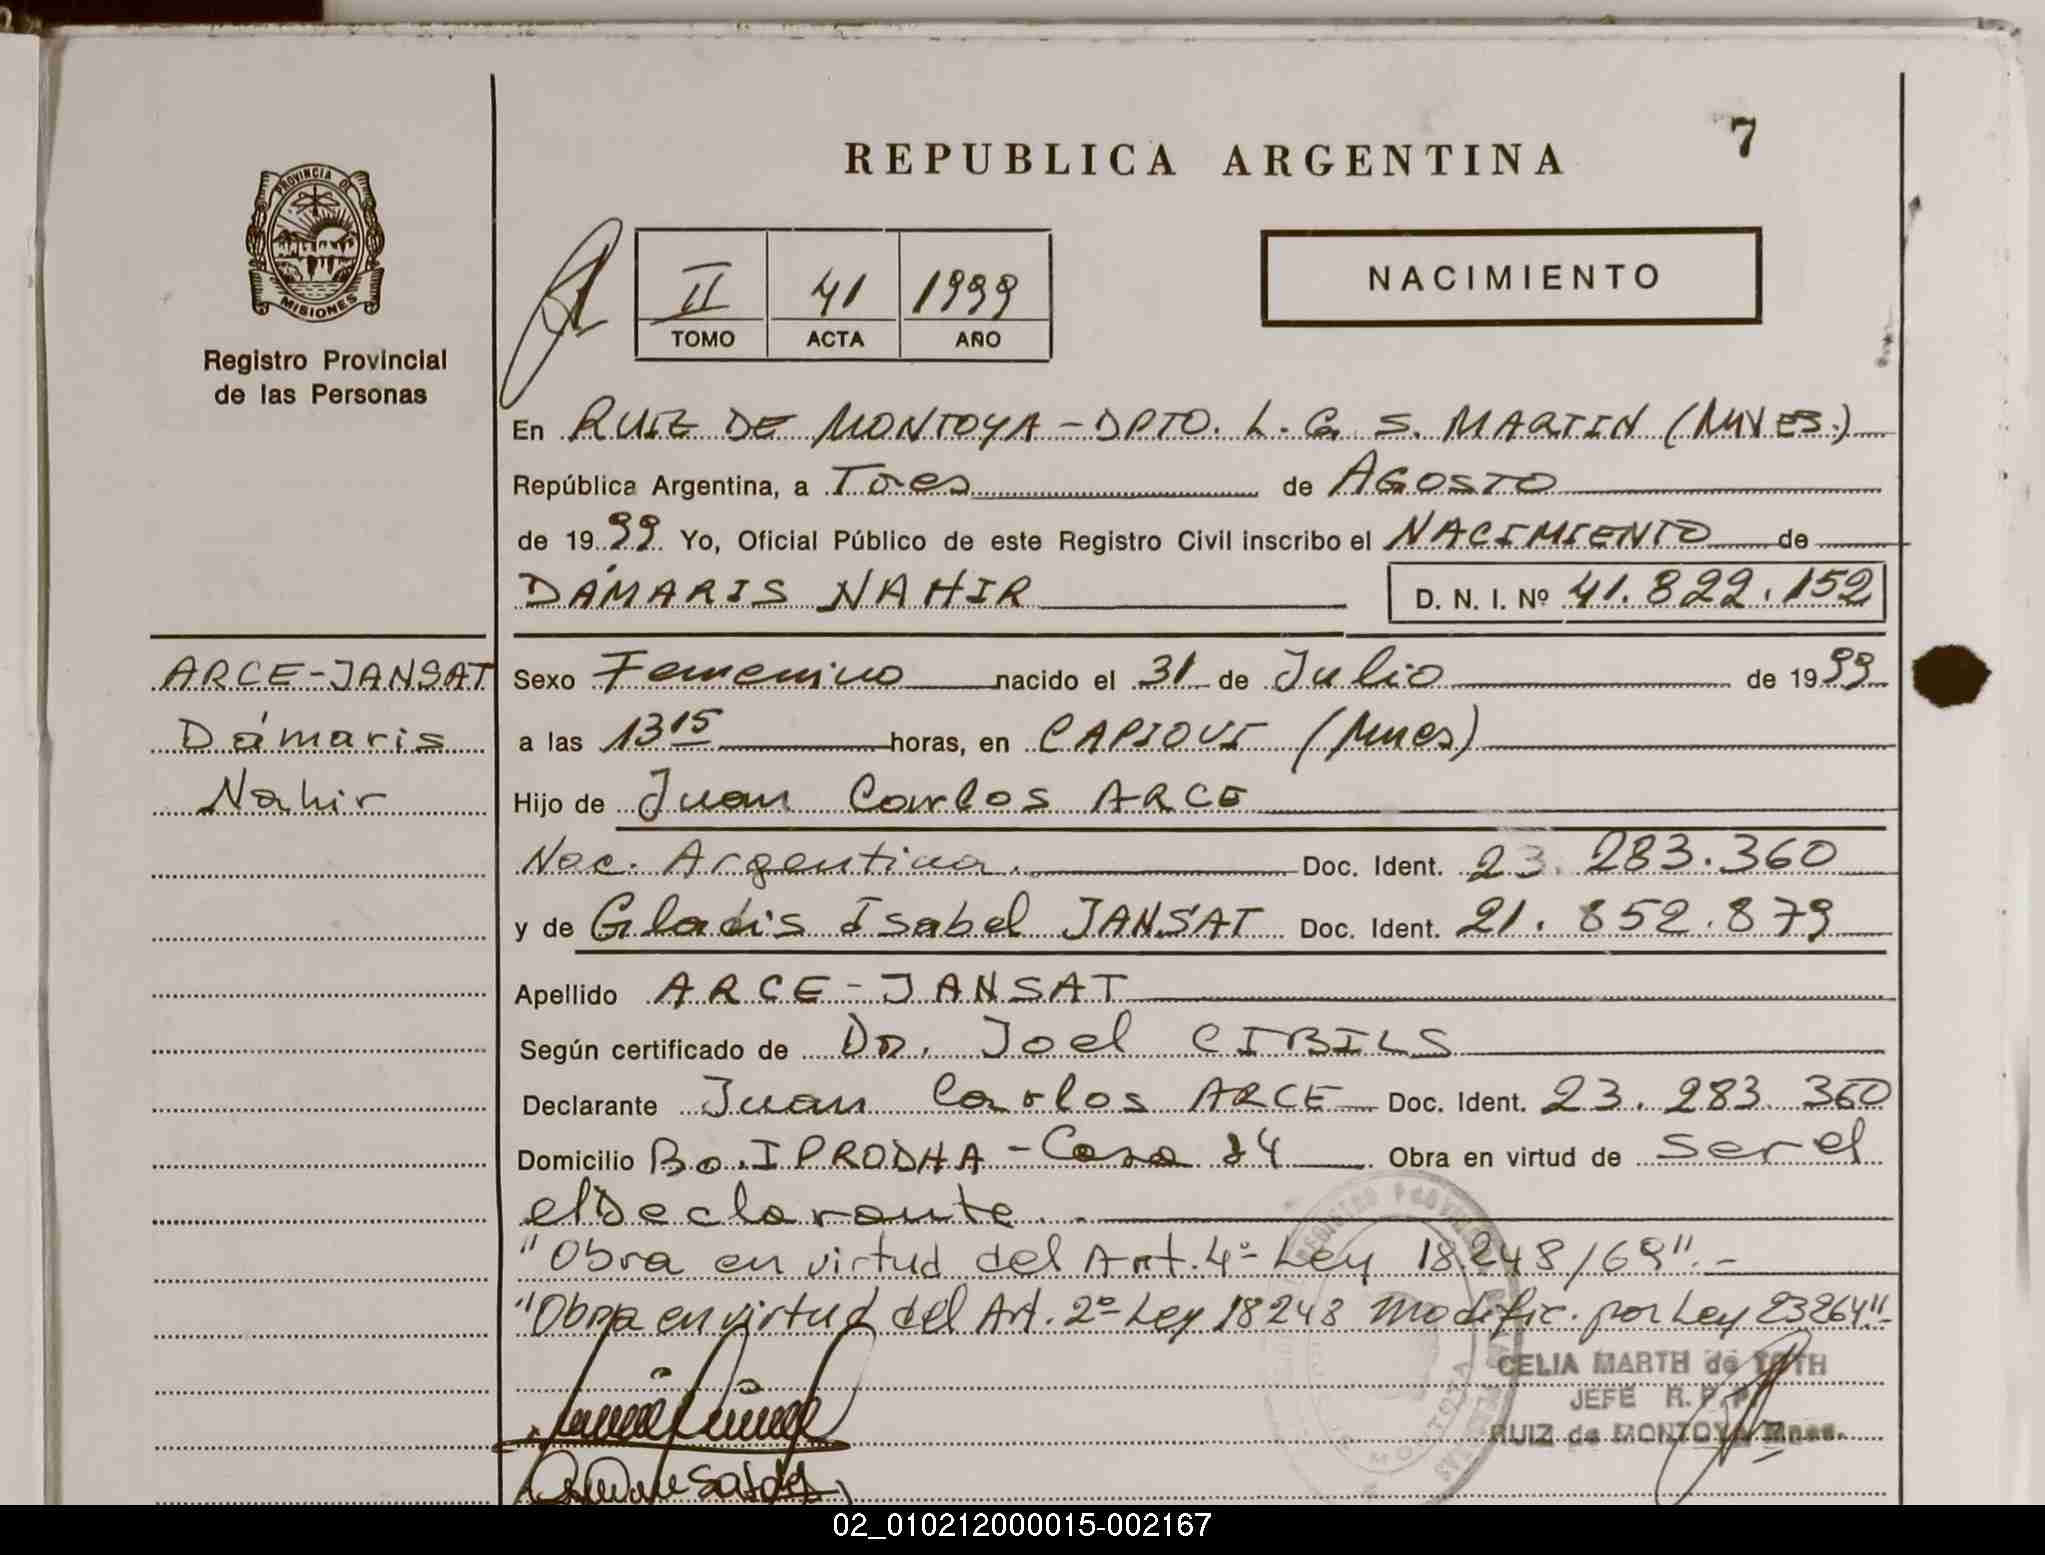 REPUBLICA ARGENTINA
7
PROVINCIA DE
MISIONES
Registro Provincial
de las Personas
II 41 1999
TOMO ACTA AÑO
NACIMIENTO
En RUIZ DE MONTOYA - DPTO. L. G. S. MARTIN (MNES.)
República Argentina, a Tres de AGOSTO
de 1999 Yo, Oficial Público de este Registro Civil inscribo el NACIMIENTO de
DÁMARIS NAHIR D. N. I. Nº 41.822.152
ARCE-JANSAT
Dámaris
Nahir
Sexo Femenino nacido el 31 de Julio de 1999
a las 13 15 horas, en CAPIOVI (Mnes)
Hijo de Juan Carlos ARCE
Nac. Argentina. Doc. Ident. 23.283.360
y de Gladis Isabel JANSAT Doc. Ident. 21.852.879
Apellido ARCE-JANSAT
Según certificado de Dr. Joel CIBILS
Declarante Juan Carlos ARCE Doc. Ident. 23.283.360
Domicilio Bo. IPRODHA - Casa 24 Obra en virtud de ser el
el Declarante.
"Obra en virtud del Art. 4º Ley 18.248/69".-
"Obra en virtud del Art. 2º Ley 18248 Modific. por Ley 23264".-
CELIA MARTH de TOTH
JEFE R. P. P.
RUIZ de MONTOYA Mnes.
02_010212000015-002167